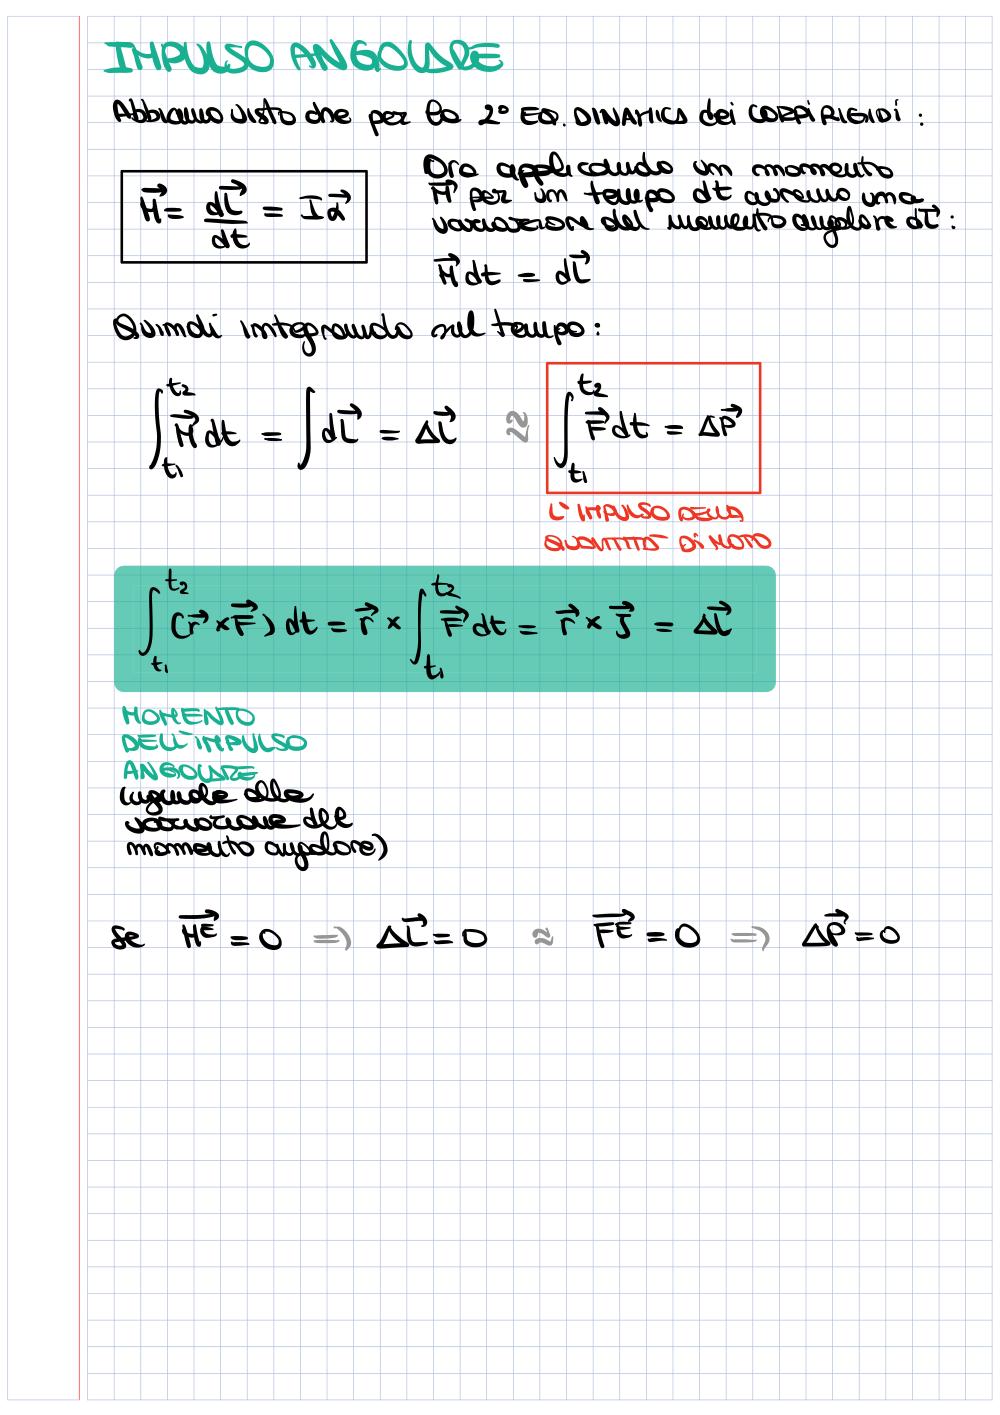 IMPULSO ANGOLARE
Abbiamo visto che per la 2° EQ. DINAMICA dei CORPI RIGIDI :
Ora applicando un momento
M⃗ per un tempo dt avremo una
variazione del momento angolare dL⃗ :
M⃗ = dL⃗/dt = Iα⃗
M⃗ dt = dL⃗
Quindi integrando sul tempo :
∫_{t1}^{t2} M⃗ dt = ∫ dL⃗ = ΔL⃗ ≈ ∫_{t1}^{t2} F⃗ dt = ΔP⃗
L'IMPULSO DELLA
QUANTITÀ DI MOTO
∫_{t1}^{t2} (r⃗ × F⃗) dt = r⃗ × ∫_{t1}^{t2} F⃗ dt = r⃗ × J⃗ = ΔL⃗
MOMENTO
DELL'IMPULSO
ANGOLARE
(uguale alla
variazione del
momento angolare)
Se M⃗ᴱ = 0 ⇒ ΔL⃗ = 0 ≈ F⃗ᴱ = 0 ⇒ ΔP⃗ = 0